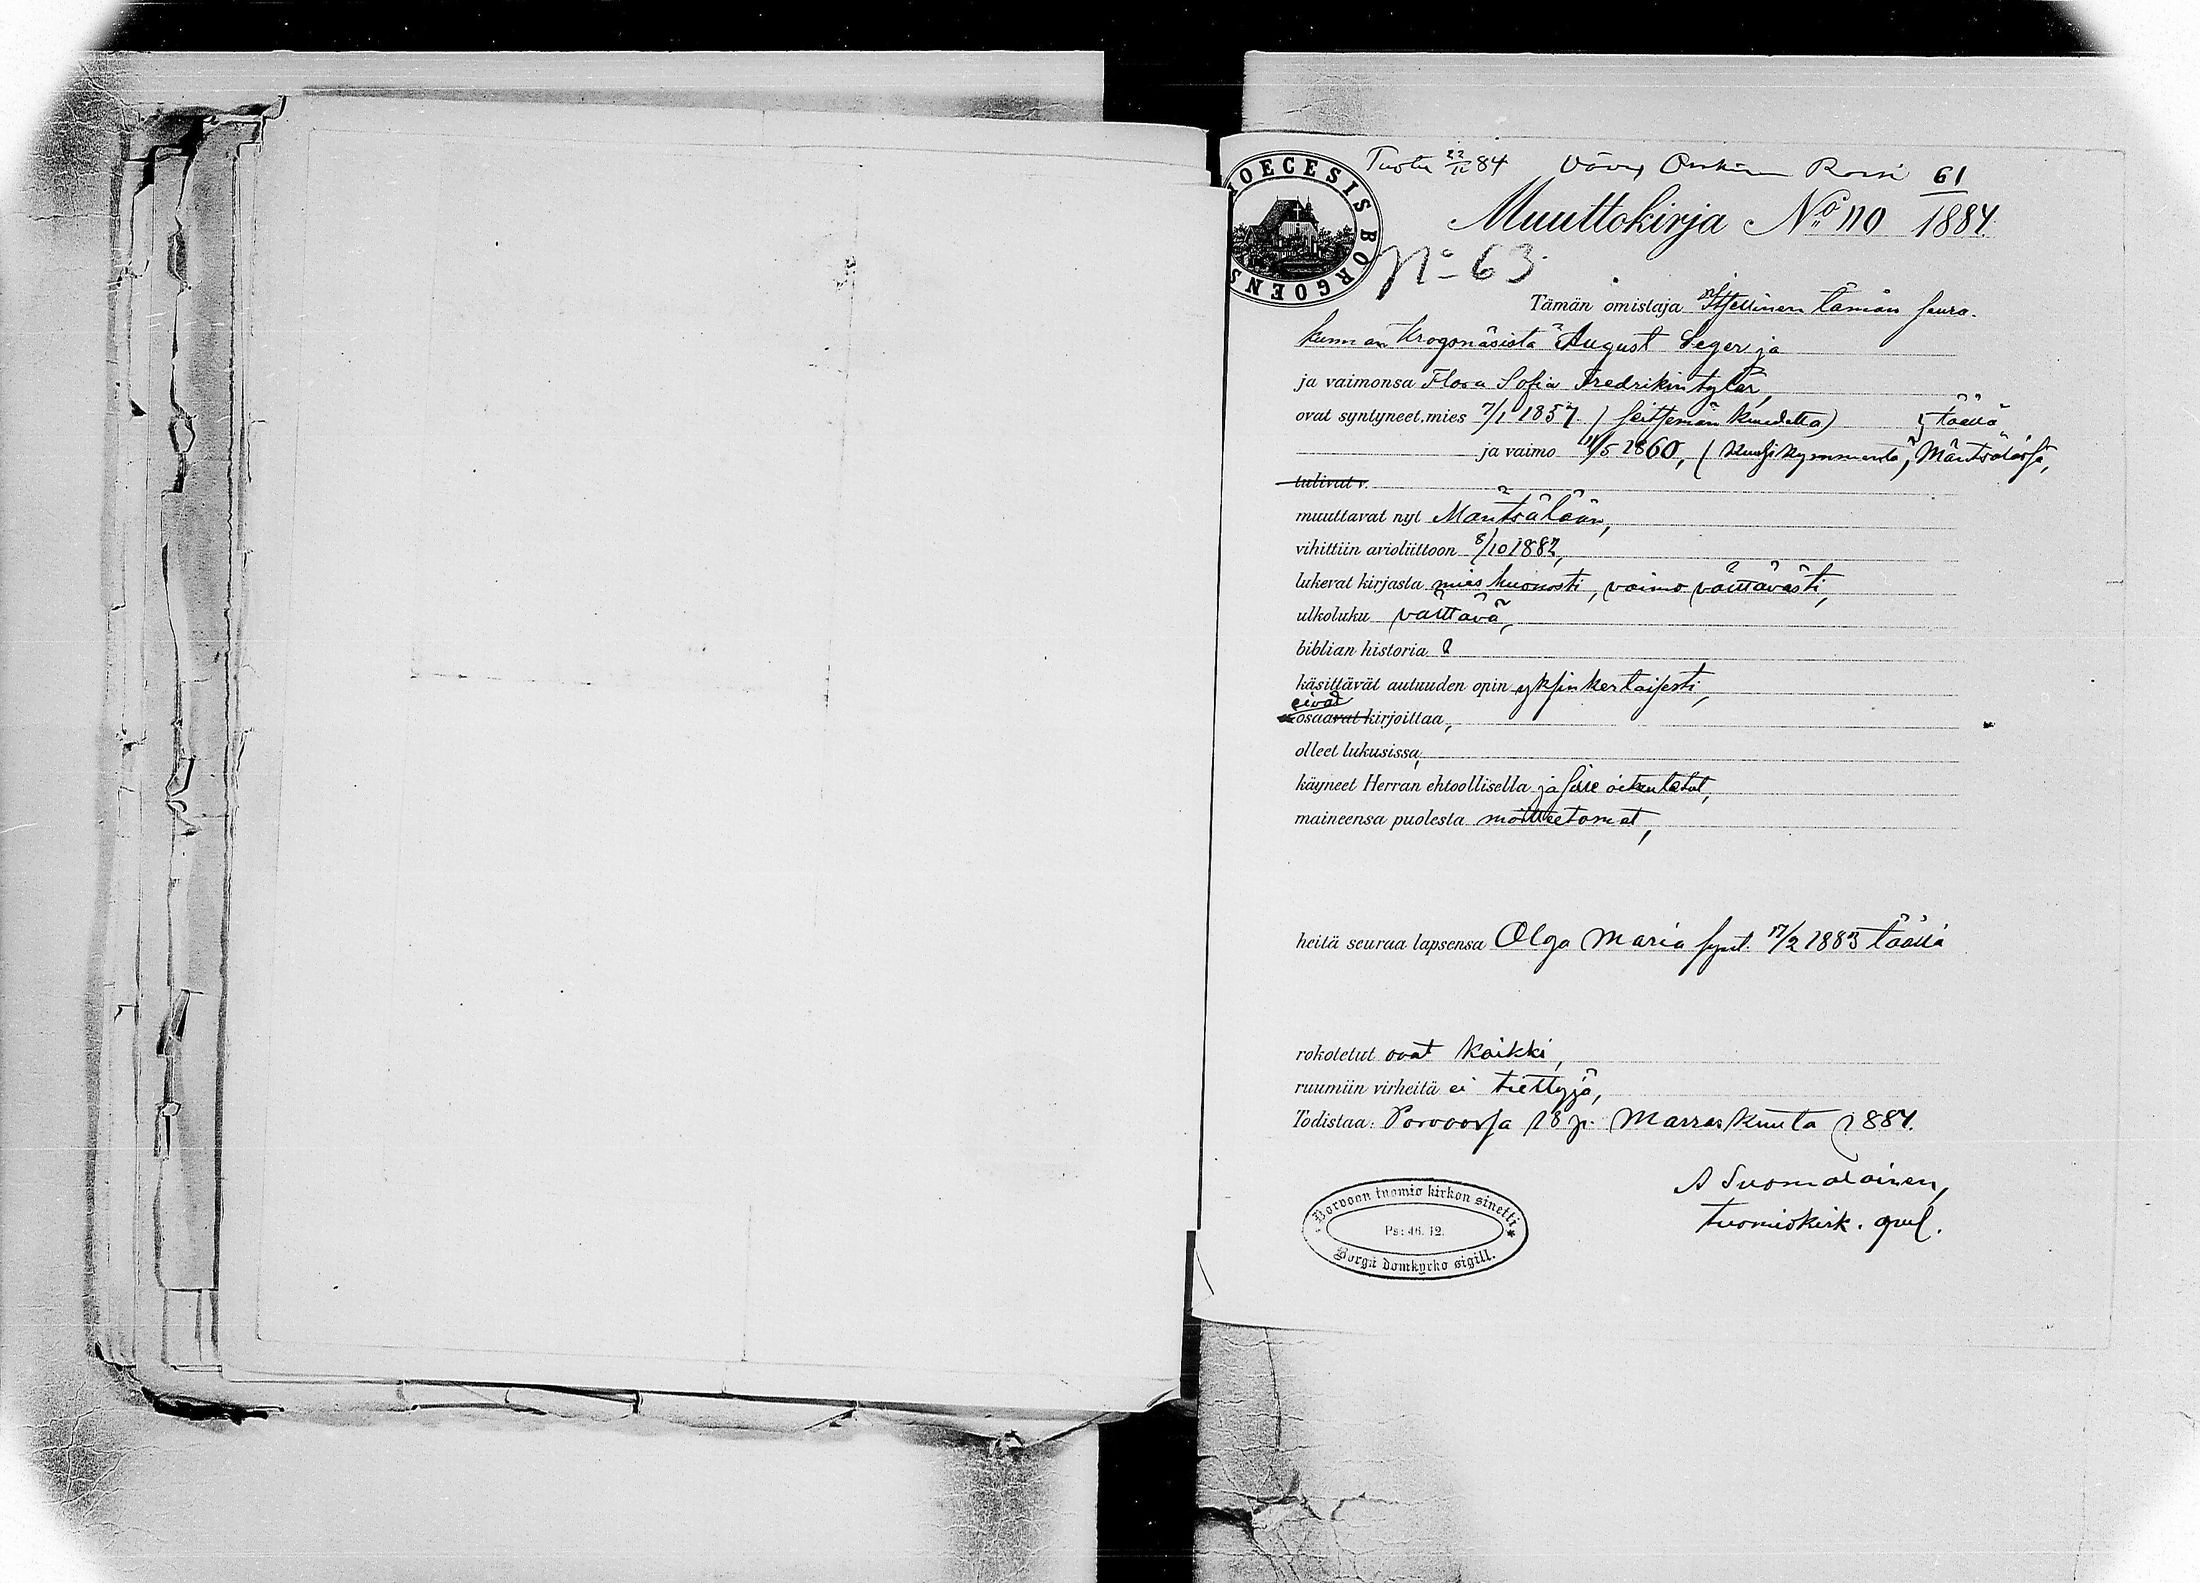 DIOECESIS BORGOENSIS
Tuotu 22/11 84 61
Muuttokirja No 110 1884.
No 63.
Tämän omistaja Itsellinen tämän seura-
kunnan Krogsnäsistä August Seger ja
ja vaimonsa Flora Sofia Fredrikin tytär,
ovat syntyneet, mies 7/1 1857 (seitsemän kuudetta) täällä
ja vaimo 11/5 1860, (kuusikymmentä, Mäntsälässä,
tulivat v.
muuttavat nyt Mäntsälään,
vihittiin avioliittoon 8/10 1882,
lukevat kirjasta mies huonosti, vaimo välttävästi,
ulkoluku välttävä,
biblian historia 0
käsittävät autuuden opin yksinkertaisesti,
eivät
osaavat kirjoittaa,
olleet lukusissa,
käyneet Herran ehtoollisella ja sille oikeutetut,
maineensa puolesta moitteetomat,
heitä seuraa lapsensa Olga Maria synt. 17/2 1883 täällä
rokotetut ovat kaikki,
ruumiin virheitä ei tiettyjä,
Todistaa: Porvoossa 18 p. Marraskuuta 1884.
A Suomalainen,
tuomiokirk. apul.
Porvoon tuomio kirkon sinetti
Ps: 46. 12.
Borgå domkyrko sigill.